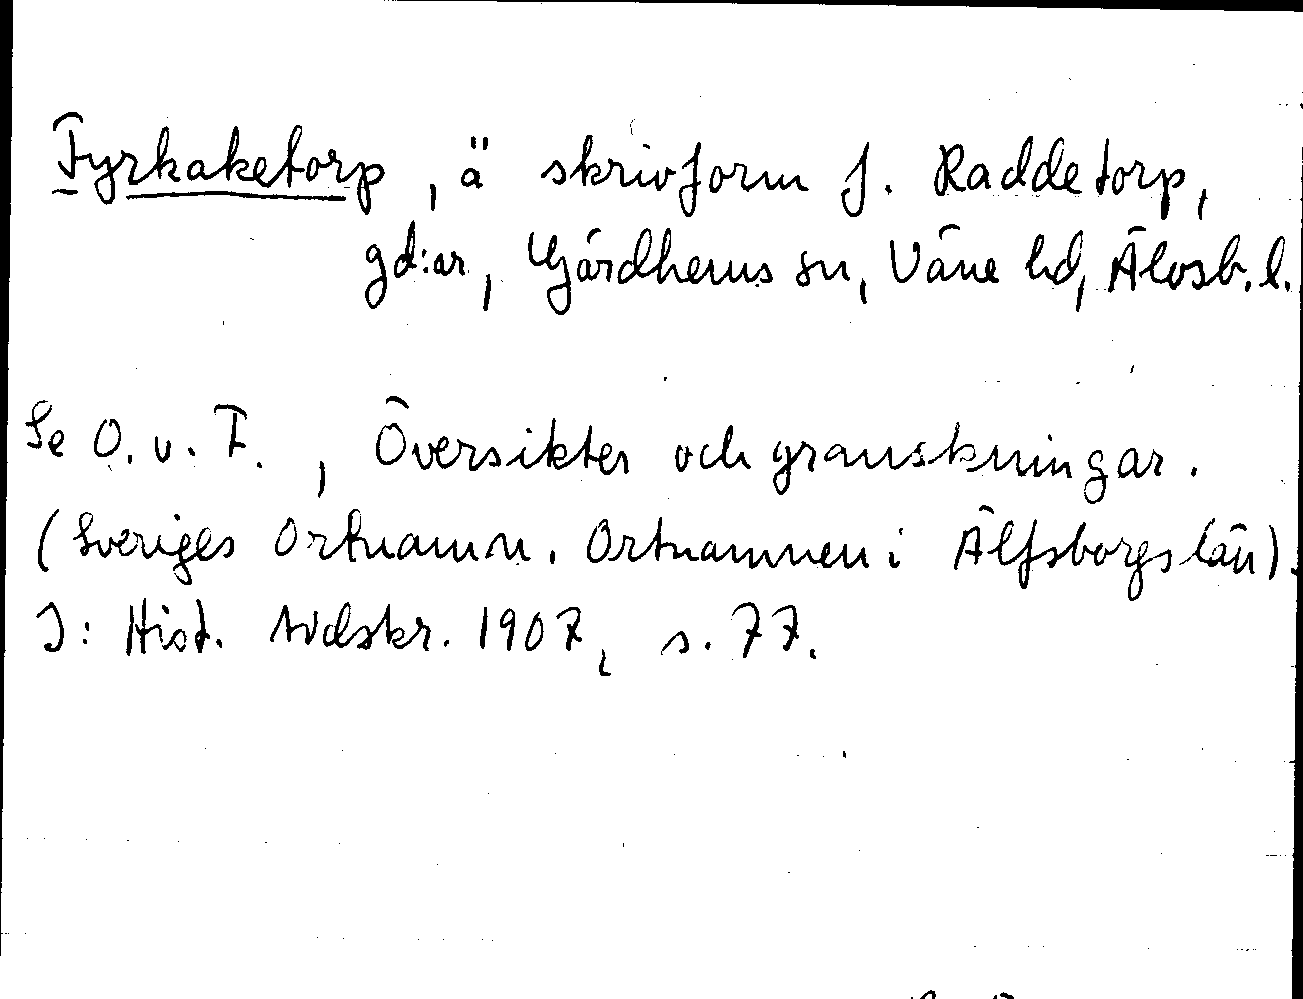 Fyrkaketorp, ä skrivform f. Raddetorp,
gd:ar, Gärdhems sn, Väne hd, Älvsb. l.
Se O. v. F., Översikter och granskningar.
(Sveriges Ortnamn. Ortnamnen i Älfsborgs län).
I: Hist. tidskr. 1907, s. 77.